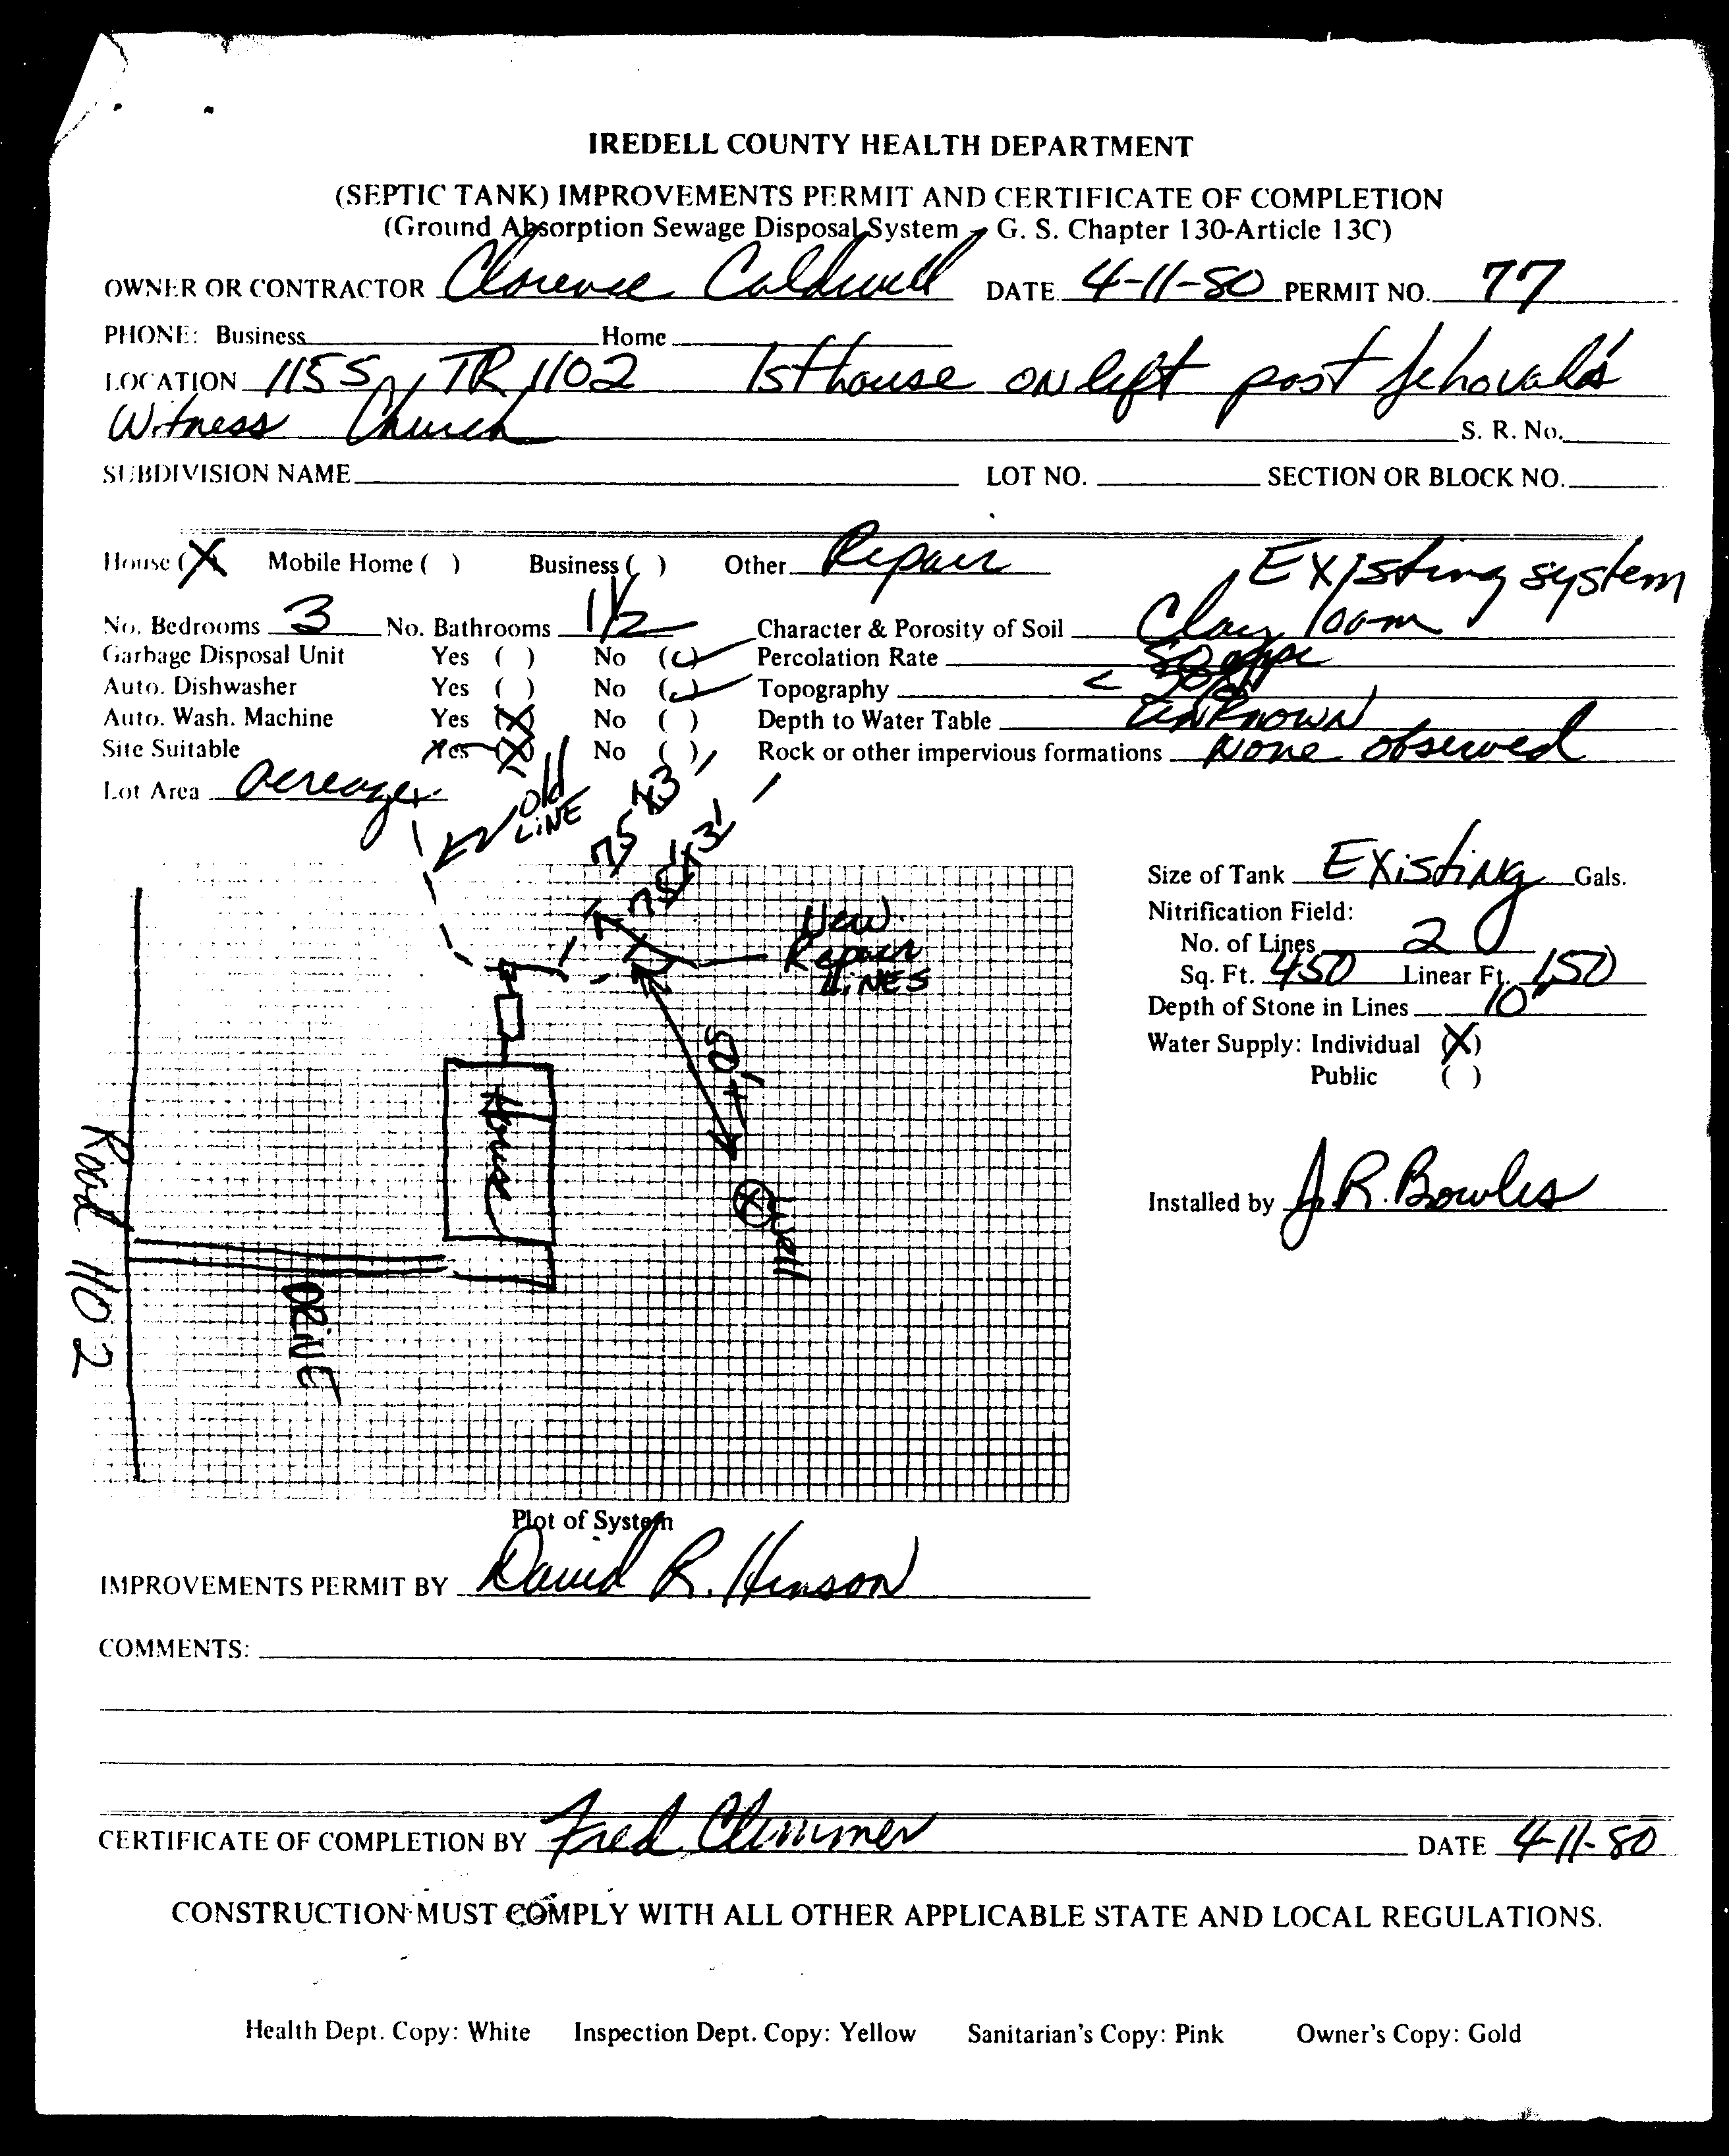 IREDELL COUNTY HEALTH DEPARTMENT
(SEPTIC TANK) IMPROVEMENTS PERMIT AND CERTIFICATE OF COMPLETION
(Ground Absorption Sewage Disposal System - G. S. Chapter 130-Article 13C)
OWNER OR CONTRACTOR Clarence Caldwell DATE 4-11-80 PERMIT NO. 77
PHONE: Business Home
LOCATION 115S, TR 1102 1st house on left past Jehovah's
Witness Church S. R. No.
SUBDIVISION NAME LOT NO. SECTION OR BLOCK NO.
House (X) Mobile Home ( ) Business ( ) Other Repair Existing system
No. Bedrooms 3 No. Bathrooms 1 1/2 Character & Porosity of Soil Clay loam
Garbage Disposal Unit Yes ( ) No (✓) Percolation Rate
Auto. Dishwasher Yes ( ) No (✓) Topography <
Auto. Wash. Machine Yes (X) No ( ) Depth to Water Table unknown
Site Suitable Yes (X) No ( ) Rock or other impervious formations None observed
Lot Area acreage
old
LINE
75 x 3'
75' x 3'
New
Repair
LINES
50'±
House
Well
DRIVE
Road 1102
Size of Tank Existing Gals.
Nitrification Field:
No. of Lines 2
Sq. Ft. 450 Linear Ft. 150
Depth of Stone in Lines 10"
Water Supply: Individual (X)
Public ( )
Installed by J.R. Bowles
Plot of System
IMPROVEMENTS PERMIT BY David R. Hinson
COMMENTS:
CERTIFICATE OF COMPLETION BY Fred Clemmer DATE 4-11-80
CONSTRUCTION MUST COMPLY WITH ALL OTHER APPLICABLE STATE AND LOCAL REGULATIONS.
Health Dept. Copy: White Inspection Dept. Copy: Yellow Sanitarian's Copy: Pink Owner's Copy: Gold